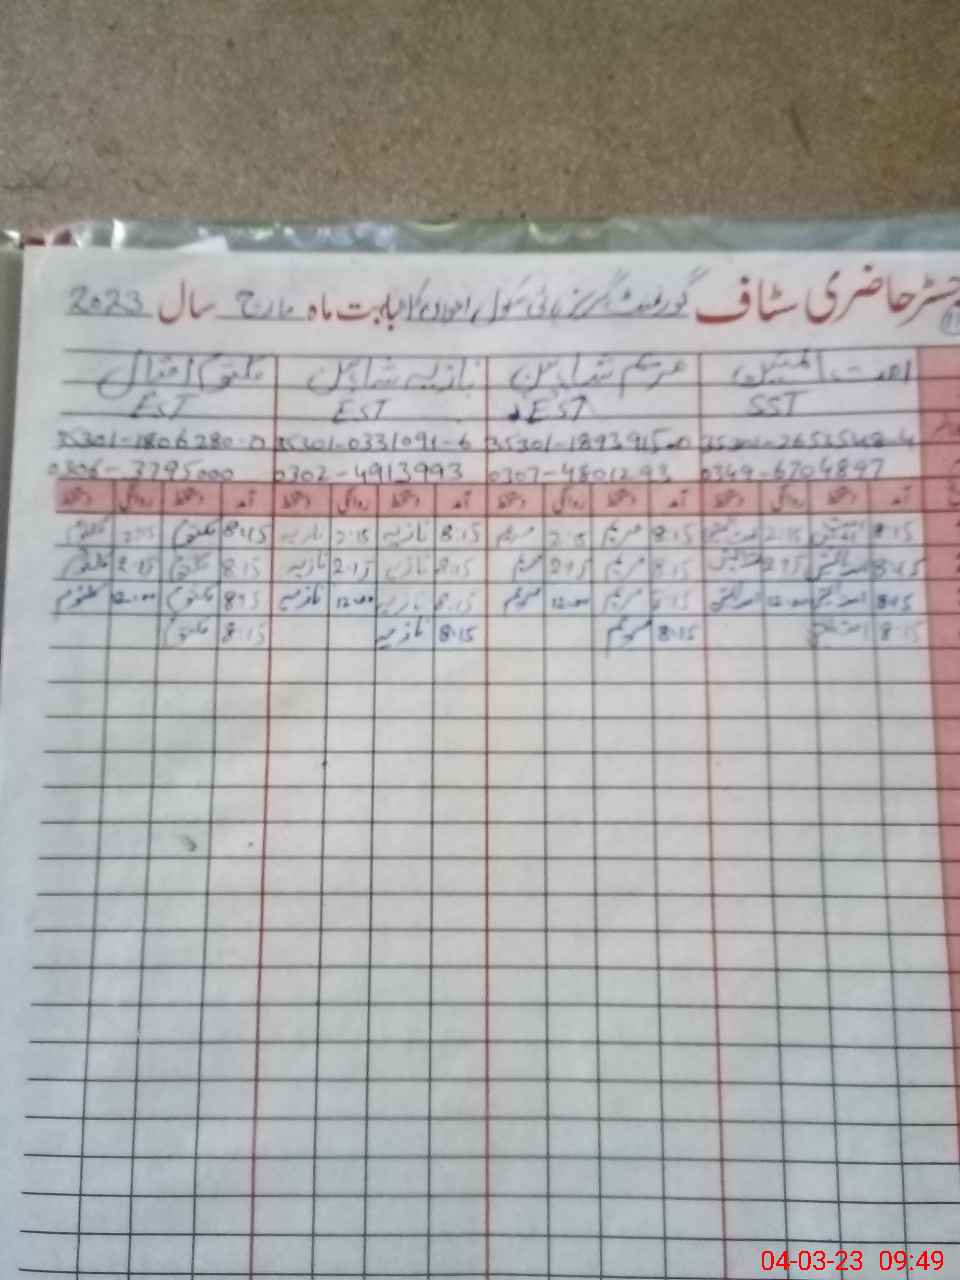 رجسٹر حاضری سٹاف گورنمنٹ گرلز ہائی سکول بابت ماہ مارچ سال 2023
مریم شاہین نازیہ شاہین کلثوم افضال
SST EST EST EST
35301-1893915-0 35301-0331091-6 35301-1806280-0
0349-6704897 0307-4801293 0302-4913993 0306-3795000
آمد دستخط روانگی دستخط آمد دستخط روانگی دستخط آمد دستخط روانگی دستخط آمد دستخط روانگی دستخط
8:15 2:15 8:15 مریم 2:15 مریم 8:15 نازیہ 2:15 نازیہ 8:15 کلثوم 2:15 کلثوم
8:15 2:15 8:15 مریم 2:15 مریم 8:15 نازیہ 2:15 نازیہ 8:15 کلثوم 2:15 کلثوم
8:15 12:00 8:15 مریم 12:00 مریم 8:15 نازیہ 12:00 نازیہ 8:15 کلثوم 12:00 کلثوم
8:15 8:15 مریم 8:15 نازیہ 8:15 کلثوم
04-03-23 09:49